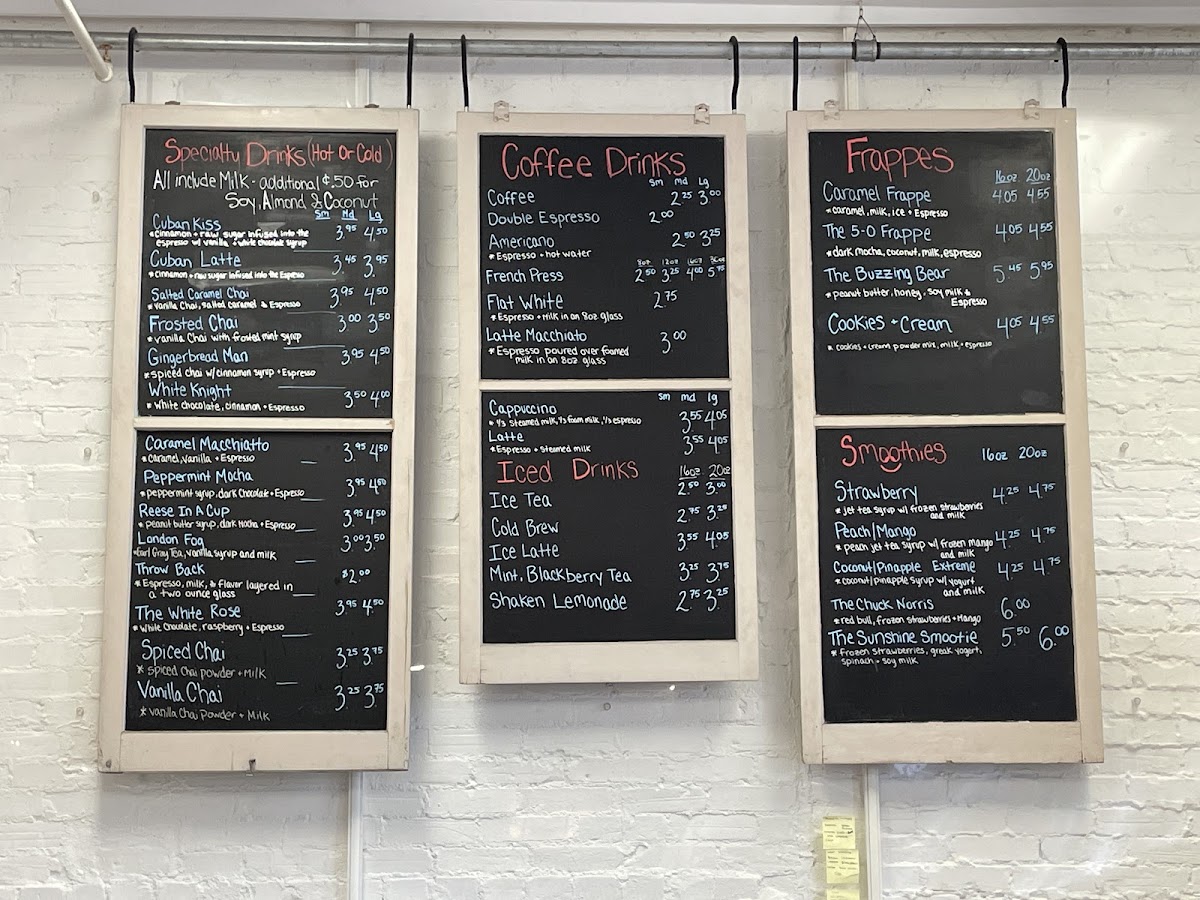 Specialty Drinks (Hot Or Cold)
All include Milk - additional ¢.50 for
Soy, Almond & Coconut
Sm Md Lg
Cuban Kiss 3.95 4.50
* cinnamon + raw sugar infused into the
espresso w/ vanilla + white chocolate syrup
Cuban Latte 3.45 3.95
* cinnamon + raw sugar infused into the Espresso
Salted Caramel Chai 3.95 4.50
* vanilla Chai, salted caramel & Espresso
Frosted Chai 3.00 3.50
* vanilla Chai with frosted mint syrup
Gingerbread Man 3.95 4.50
* spiced chai w/ cinnamon syrup + Espresso
White Knight 3.50 4.00
* White chocolate, cinnamon + Espresso
Caramel Macchiatto 3.95 4.50
* Caramel, vanilla + Espresso
Peppermint Mocha 3.95 4.50
* peppermint syrup, dark Chocolate + Espresso
Reese In A Cup 3.95 4.50
* peanut butter syrup, dark Mocha + Espresso
London Fog 3.00 3.50
* Earl Gray Tea, vanilla syrup and milk
Throw Back $2.00
* Espresso, milk, & flavor layered in
a two ounce glass
The White Rose 3.95 4.50
* White Chocolate, raspberry + Espresso
Spiced Chai 3.25 3.75
* spiced chai powder + Milk
Vanilla Chai 3.25 3.75
* vanilla Chai Powder + Milk
Coffee Drinks
Sm Md Lg
Coffee 2.25 3.00
Double Espresso 2.00
Americano 2.50 3.25
* Espresso + hot water
8oz 12oz 16oz
French Press 2.50 3.25 4.00 5.75
Flat White 2.75
* Espresso + Milk in an 8oz glass
Latte Macchiato 3.00
* Espresso poured over foamed
milk in an 8oz glass
Sm md lg
Cappuccino 3.55 4.05
* 1/3 steamed milk, 1/3 foam milk, 1/3 espresso
Latte 3.55 4.05
* Espresso + steamed milk
Iced Drinks 16oz 20oz
Ice Tea 2.50 3.00
Cold Brew 2.75 3.25
Ice Latte 3.55 4.05
Mint, Blackberry Tea 3.25 3.75
Shaken Lemonade 2.75 3.25
Frappes
16oz 20oz
Caramel Frappe 4.05 4.55
* caramel, milk, ice + Espresso
The 5-0 Frappe 4.05 4.55
* dark mocha, coconut, milk, espresso
The Buzzing Bear 5.45 5.95
* peanut butter, honey, soy milk &
Espresso
Cookies + Cream 4.05 4.55
* cookies + cream powder mix, milk + espresso
Smoothies 16oz 20oz
Strawberry 4.25 4.75
* jet tea syrup w/ frozen strawberries
and milk
Peach/Mango 4.25 4.75
* peach jet tea syrup w/ frozen mango
and milk
Coconut/Pinapple Extreme 4.25 4.75
* coconut/pinapple syrup w/ yogurt
and milk
The Chuck Norris 6.00
* red bull, frozen strawberries + Mango
The Sunshine Smootie 5.50 6.00
* frozen strawberries, greak yogart,
spinach + soy milk